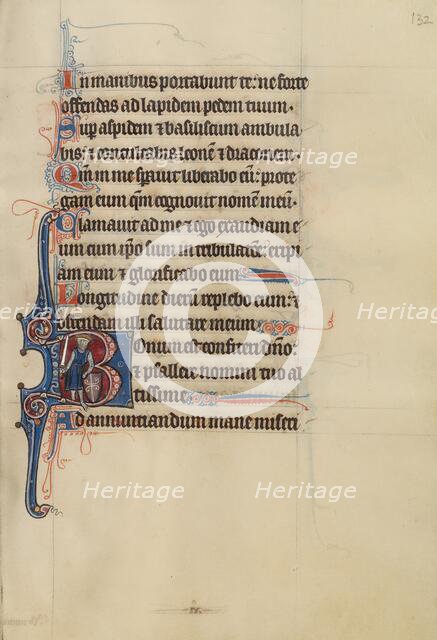 132
In manibus portabunt te: ne forte
offendas ad lapidem pedem tuum.
Sup aspidem & basiliscum ambula
bis: & conculcabis leonē & draconem.
Qm̄ in me spavit liberabo eū: prote
gam eum qm̄ cognovit nomē meū.
Clamavit ad me & ego exaudiam e
um cum ip̄o sum in tribulatōe: eripi
am eum & glorificabo eum
Longitudine dierū replebo eum: &
ostendam illi salutare meum.
Bonum est confiteri dn̄o:
& psallere nomini tuo al
tissime
Ad annunciandum mane miseri
Heritage Heritage Heritage
Heritage Heritage
Heritage Heritage Heritage